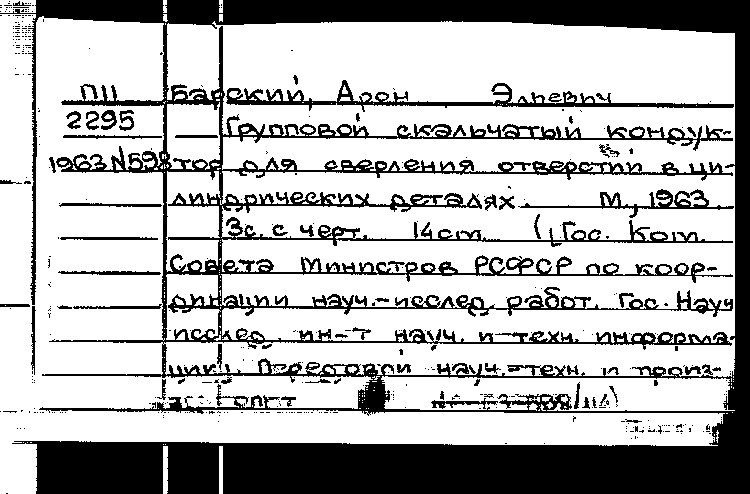 П11 Барский, Арон Эльевич
2295 Групповой скальчатый кондук-
1963 N598 тор для сверления отверстий в ци-
линдрических деталях. М., 1963.
3с. с черт. 14 см. (Гос. Ком.
Совета Министров РСФСР по коор-
динации науч.-исслед. работ. Гос. Науч
исслед. ин-т науч. и техн. информа-
ции. Передовой науч.-техн. и произ-
опыт